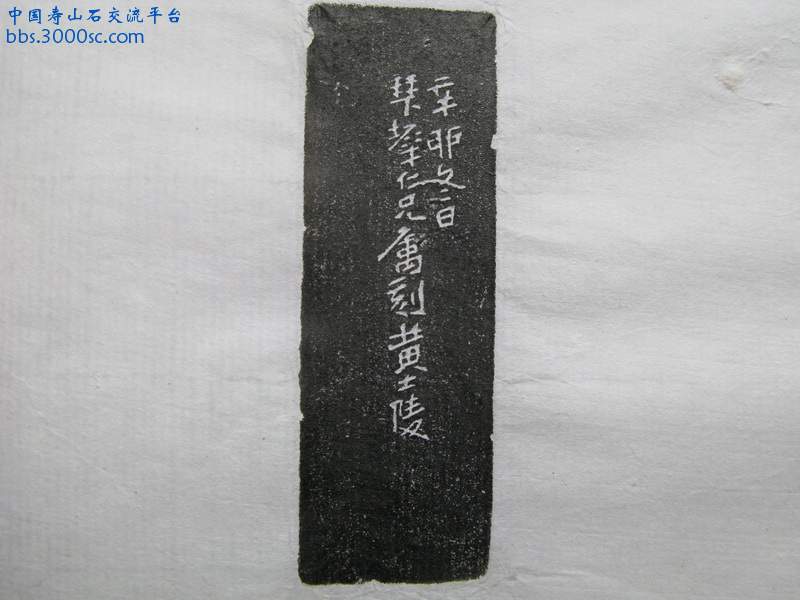 中国寿山石交流平台
bbs.3000sc.com
辛卯冬日
琴仁兄属刻黄士陵